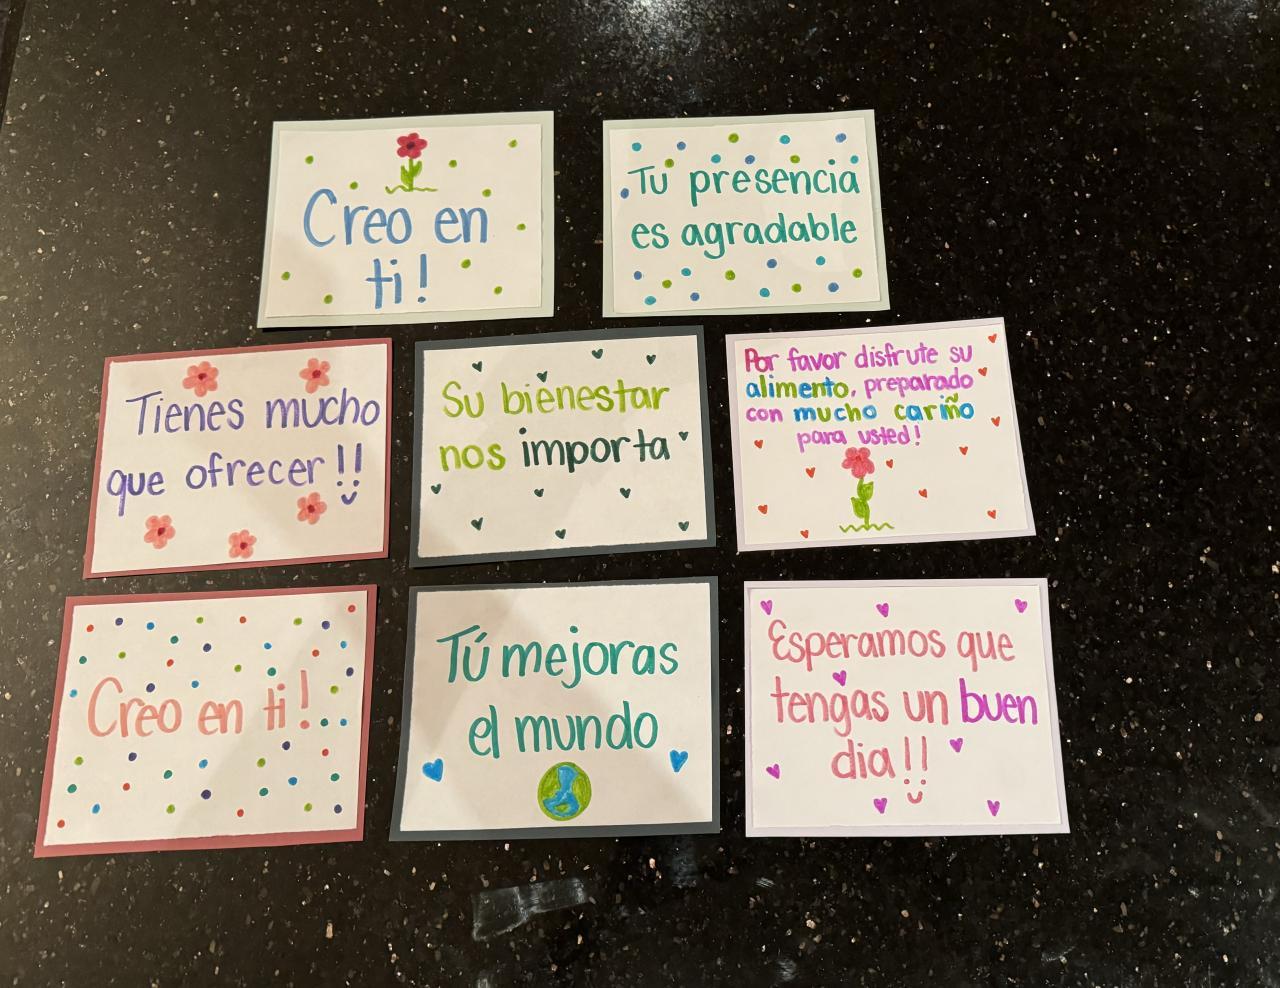 Creo en
ti!
Tu presencia
es agradable
Tienes mucho
que ofrecer!!
Su bienestar
nos importa
Por favor disfrute su
alimento, preparado
con mucho cariño
para usted!
Creo en ti!
Tú mejoras
el mundo
Esperamos que
tengas un buen
dia!!